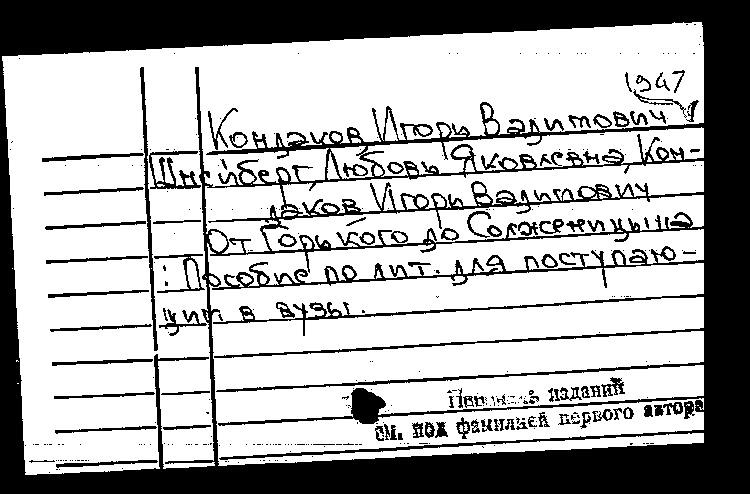 1947
Кондаков, Игорь Вадимович
Шнейберг, Любовь Яковлевна, Кон-
даков Игорь Вадимович
От Горького до Солженицына
: Пособие по лит. для поступаю-
щих в вузы.
Перечень изданий
см. под фамилией первого автора